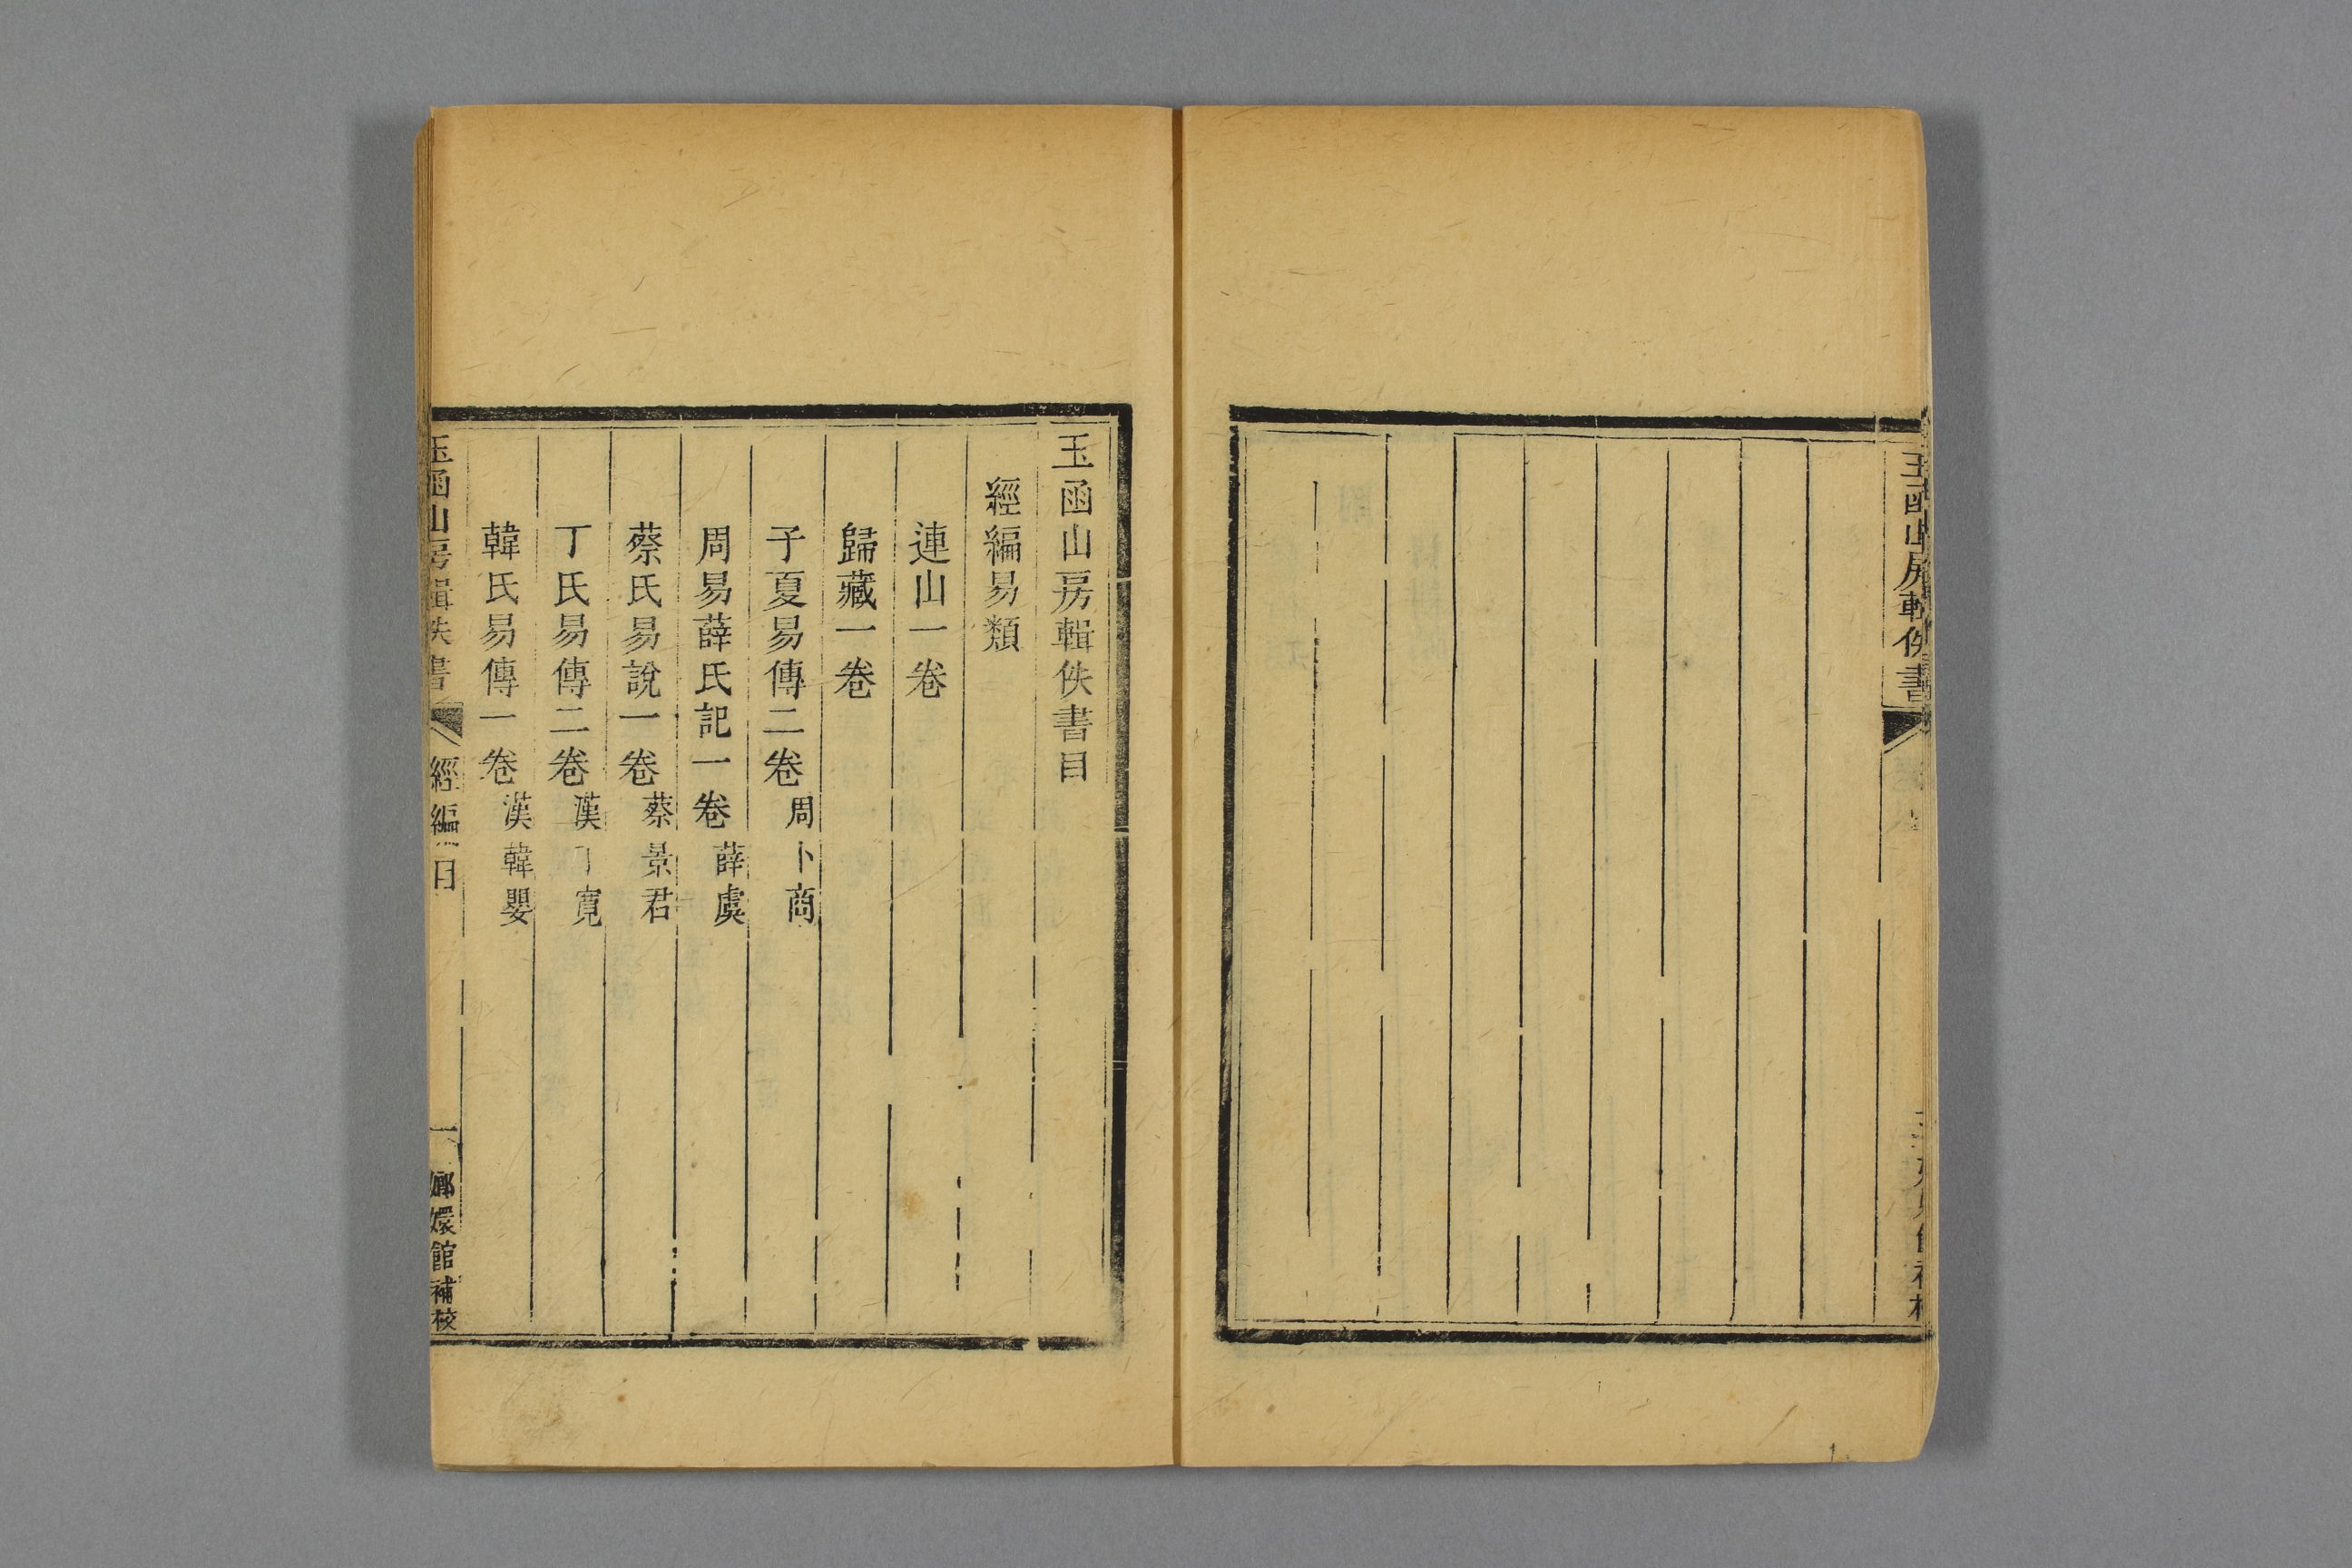 玉函山房輯佚書
玉函山房輯佚書目
經編易類
連山一卷
歸藏一卷
子夏易傳二卷 周卜商
周易薛氏記一卷 薛虞
蔡氏易說一卷 蔡景君
丁氏易傳二卷 漢丁寬
韓氏易傳一卷 漢韓嬰
玉函山房輯佚書 經編目 一 嫏嬛館補校